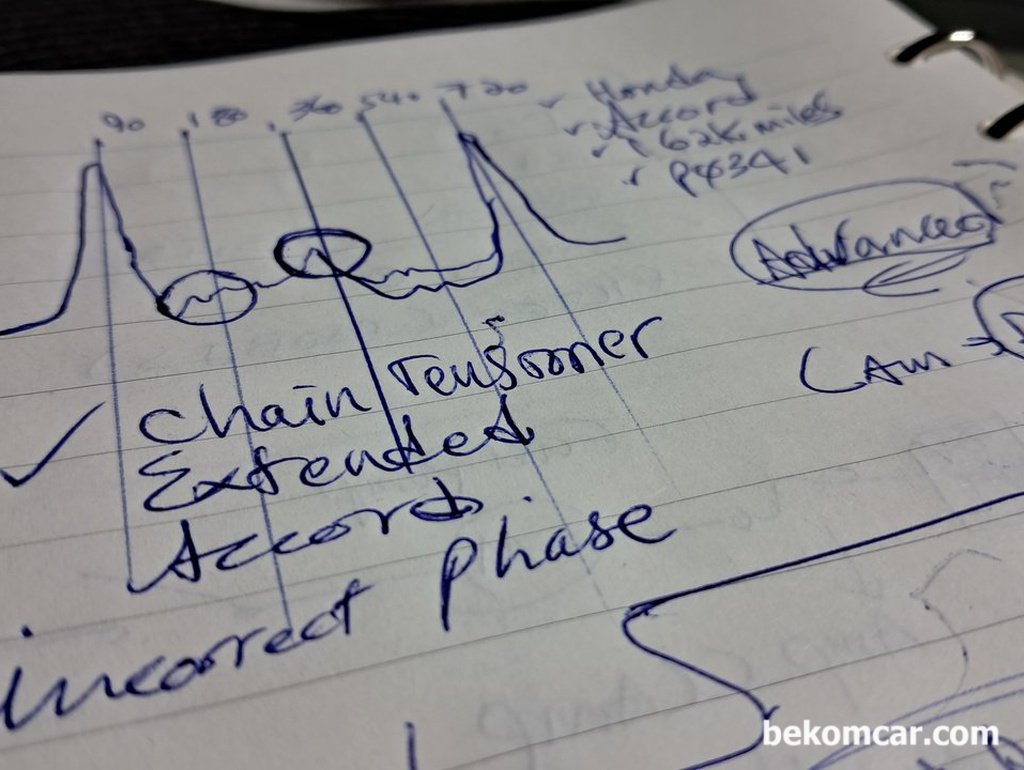 90 180 360 540 720
Honda
Accord
62k miles
P0341
Advanced
Cam →
Chain Tensioner
Extended
Accord
incorrect phase
bekomcar.com